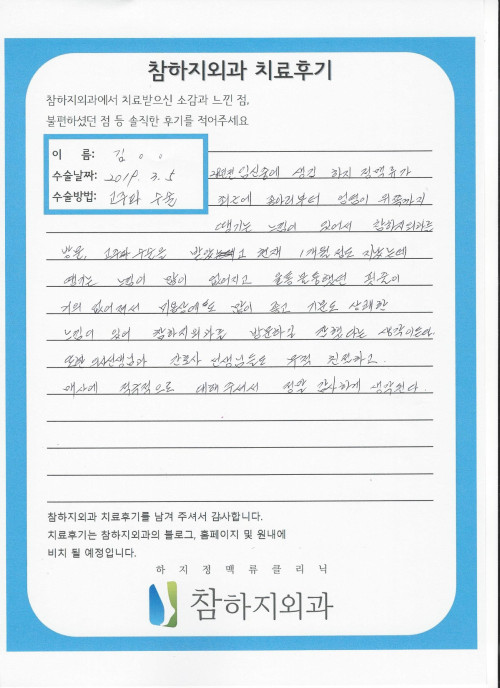 참하지외과 치료후기
참하지외과에서 치료받으신 소감과 느낀 점,
불편하셨던 점 등 솔직한 후기를 적어주세요
이 름: 김ㅇㅇ
수술날짜: 2019. 3. 5
수술방법: 고주파 수술
임신중에 생긴 하지 정맥류가
최근에 종아리부터 엉덩이 뒤쪽까지
땡기는 느낌이 있어서 참하지외과를
방문, 고주파 수술을 받았고 현재 1개월 정도 지났는데
땡기는 느낌이 많이 없어지고 울퉁불퉁했던 핏줄이
거의 없어져서 미용상에도 많이 좋고 기분도 상쾌한
느낌이 있어 참하지외과를 방문하길 잘했다는 생각이든다.
또한 의사선생님과 간호사 선생님들도 무척 친절하고
매사에 적극적으로 대해 주셔서 정말 감사하게 생각된다.
참하지외과 치료후기를 남겨 주셔서 감사합니다.
치료후기는 참하지외과의 블로그, 홈페이지 및 원내에
비치 될 예정입니다.
하지정맥류클리닉
참하지외과